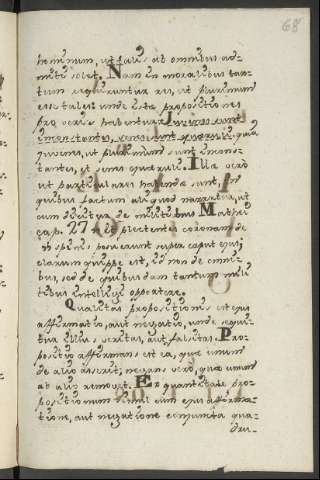 68
hominum, ut talis ab omnibus ad-
mitti solet. Nam in moralibus tan-
tum requiruntur res, ut plurimum
esse tales: unde istae propositiones
pro veris habentur. Juvenes sunt
inconstantes, senes sunt queruli: quia
juvenes, ut plurimum sunt incons-
tantes, et senes queruli. Illae vero
ut particulares habendae sunt, in
quibus factum aliquod narratur, ut
cum dicitur de militibus Matthei
cap. 27 et plectentes coronam de
spinis posuerunt super caput ejus;
clarum quippe est, id non de omni-
bus, sed de quibusdam tantum mili-
tibus intelligi oportere.
Qualitas propositionis est ejus
affirmatio, aut negatio, unde sequi-
tur illius veritas, aut falsitas. Pro-
positio affirmans est ea, quae unum
de alio asserit; negans vero, quae unum
ab alio removet. Ex quantitate pro-
positionum simul cum ejus affirma-
tione, aut negatione conjuncta qua-